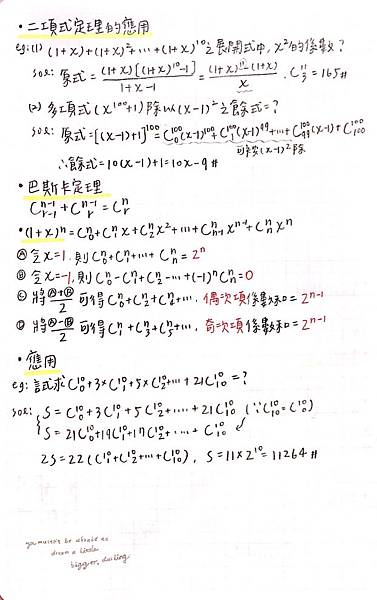 •二項式定理的應用
eg:(1) (1+x)+(1+x)²…+(1+x)¹⁰之展開式中, x²的係數?
sol: 原式=(1+x)[(1+x)¹⁰-1]/1+x-1=(1+x)¹¹-(1+x)/x. C¹¹₃=165#
(2) 多項式(x¹⁰⁰+1)除以(x-1)²之餘式=?
sol: 原式=[(x-1)+1]¹⁰⁰=C¹⁰⁰₀(x-1)¹⁰⁰+C¹⁰⁰₁(x-1)⁹⁹+…+C¹⁰⁰₉₉(x-1)+C¹⁰⁰₁₀₀
可被(x-1)²除
∴餘式=10(x-1)+1=10x-9#
•巴斯卡定理
Cⁿ⁻¹ᵣ₋₁+Cⁿ⁻¹ᵣ=Cⁿᵣ
•(1+x)ⁿ=Cⁿ₀+Cⁿ₁x+Cⁿ₂x²+…+Cⁿₙ₋₁xⁿ⁻¹+Cⁿₙxⁿ
Ⓐ令x=1, 則Cⁿ₀+Cⁿ₁+…+Cⁿₙ=2ⁿ
Ⓑ令x=-1, 則Cⁿ₀-Cⁿ₁+Cⁿ₂-…+(-1)ⁿCⁿₙ=0
Ⓒ將Ⓐ+Ⓑ/2可得Cⁿ₀+Cⁿ₂+Cⁿ₄+…, 偶次項係數和=2ⁿ⁻¹
Ⓓ將Ⓐ-Ⓑ/2可得Cⁿ₁+Cⁿ₃+Cⁿ₅+…, 奇次項係數和=2ⁿ⁻¹
•應用
eg:試求C¹⁰₀+3×C¹⁰₁+5×C¹⁰₂+…+21C¹⁰₁₀=?
sol: S=C¹⁰₀+3C¹⁰₁+5C¹⁰₂+…+21C¹⁰₁₀ (∵C¹⁰₁₀=C¹⁰₀)
S=21C¹⁰₀+19C¹⁰₁+17C¹⁰₂+…+C¹⁰₁₀
2S=22(C¹⁰₁+C¹⁰₂+…+C¹⁰₁₀), S=11×2¹⁰=11264#
you mustn't be afraid to
dream a little
bigger, darling.